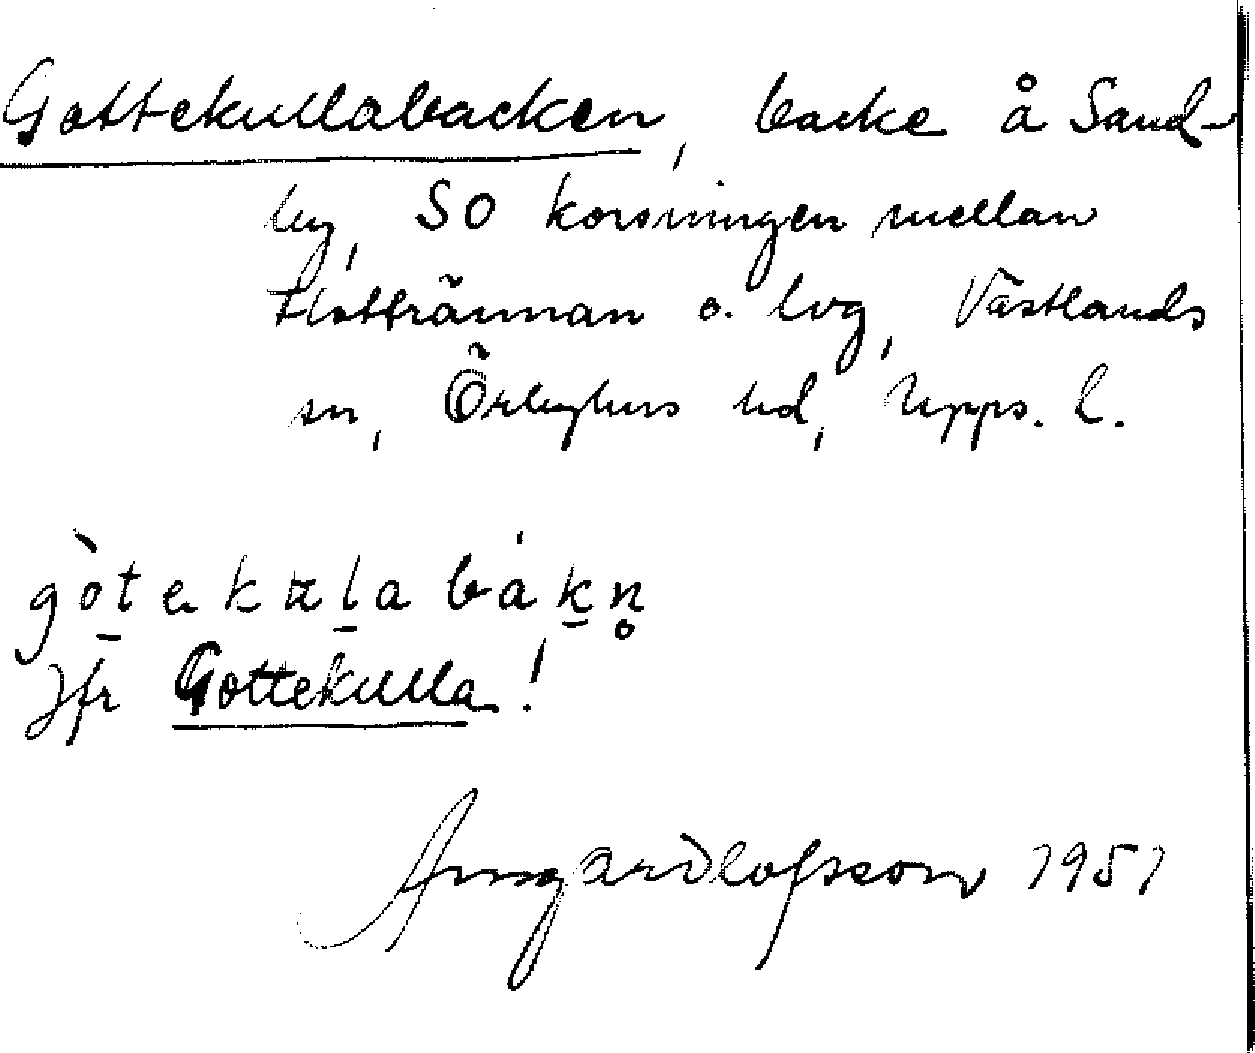 Gottekullabacken, backe å Sand-
by, SO korsningen mellan
flottrännan o. lvg, Västlands
sn, Örbyhus hd, Upps. l.
gòt̲ekul̲abákn̥
Jfr Gottekulla!
1951